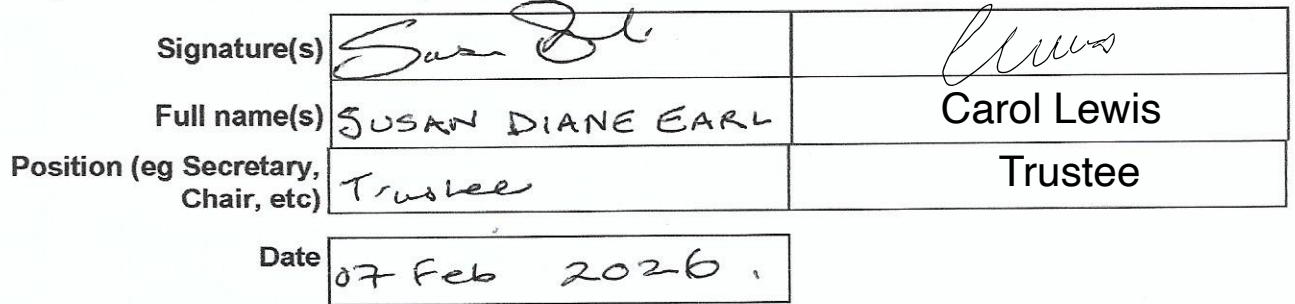 Signature(s) Susan Earl CLewis
Full name(s) SUSAN DIANE EARL Carol Lewis
Position (eg Secretary,
Chair, etc) Trustee Trustee
Date 07 Feb 2026.